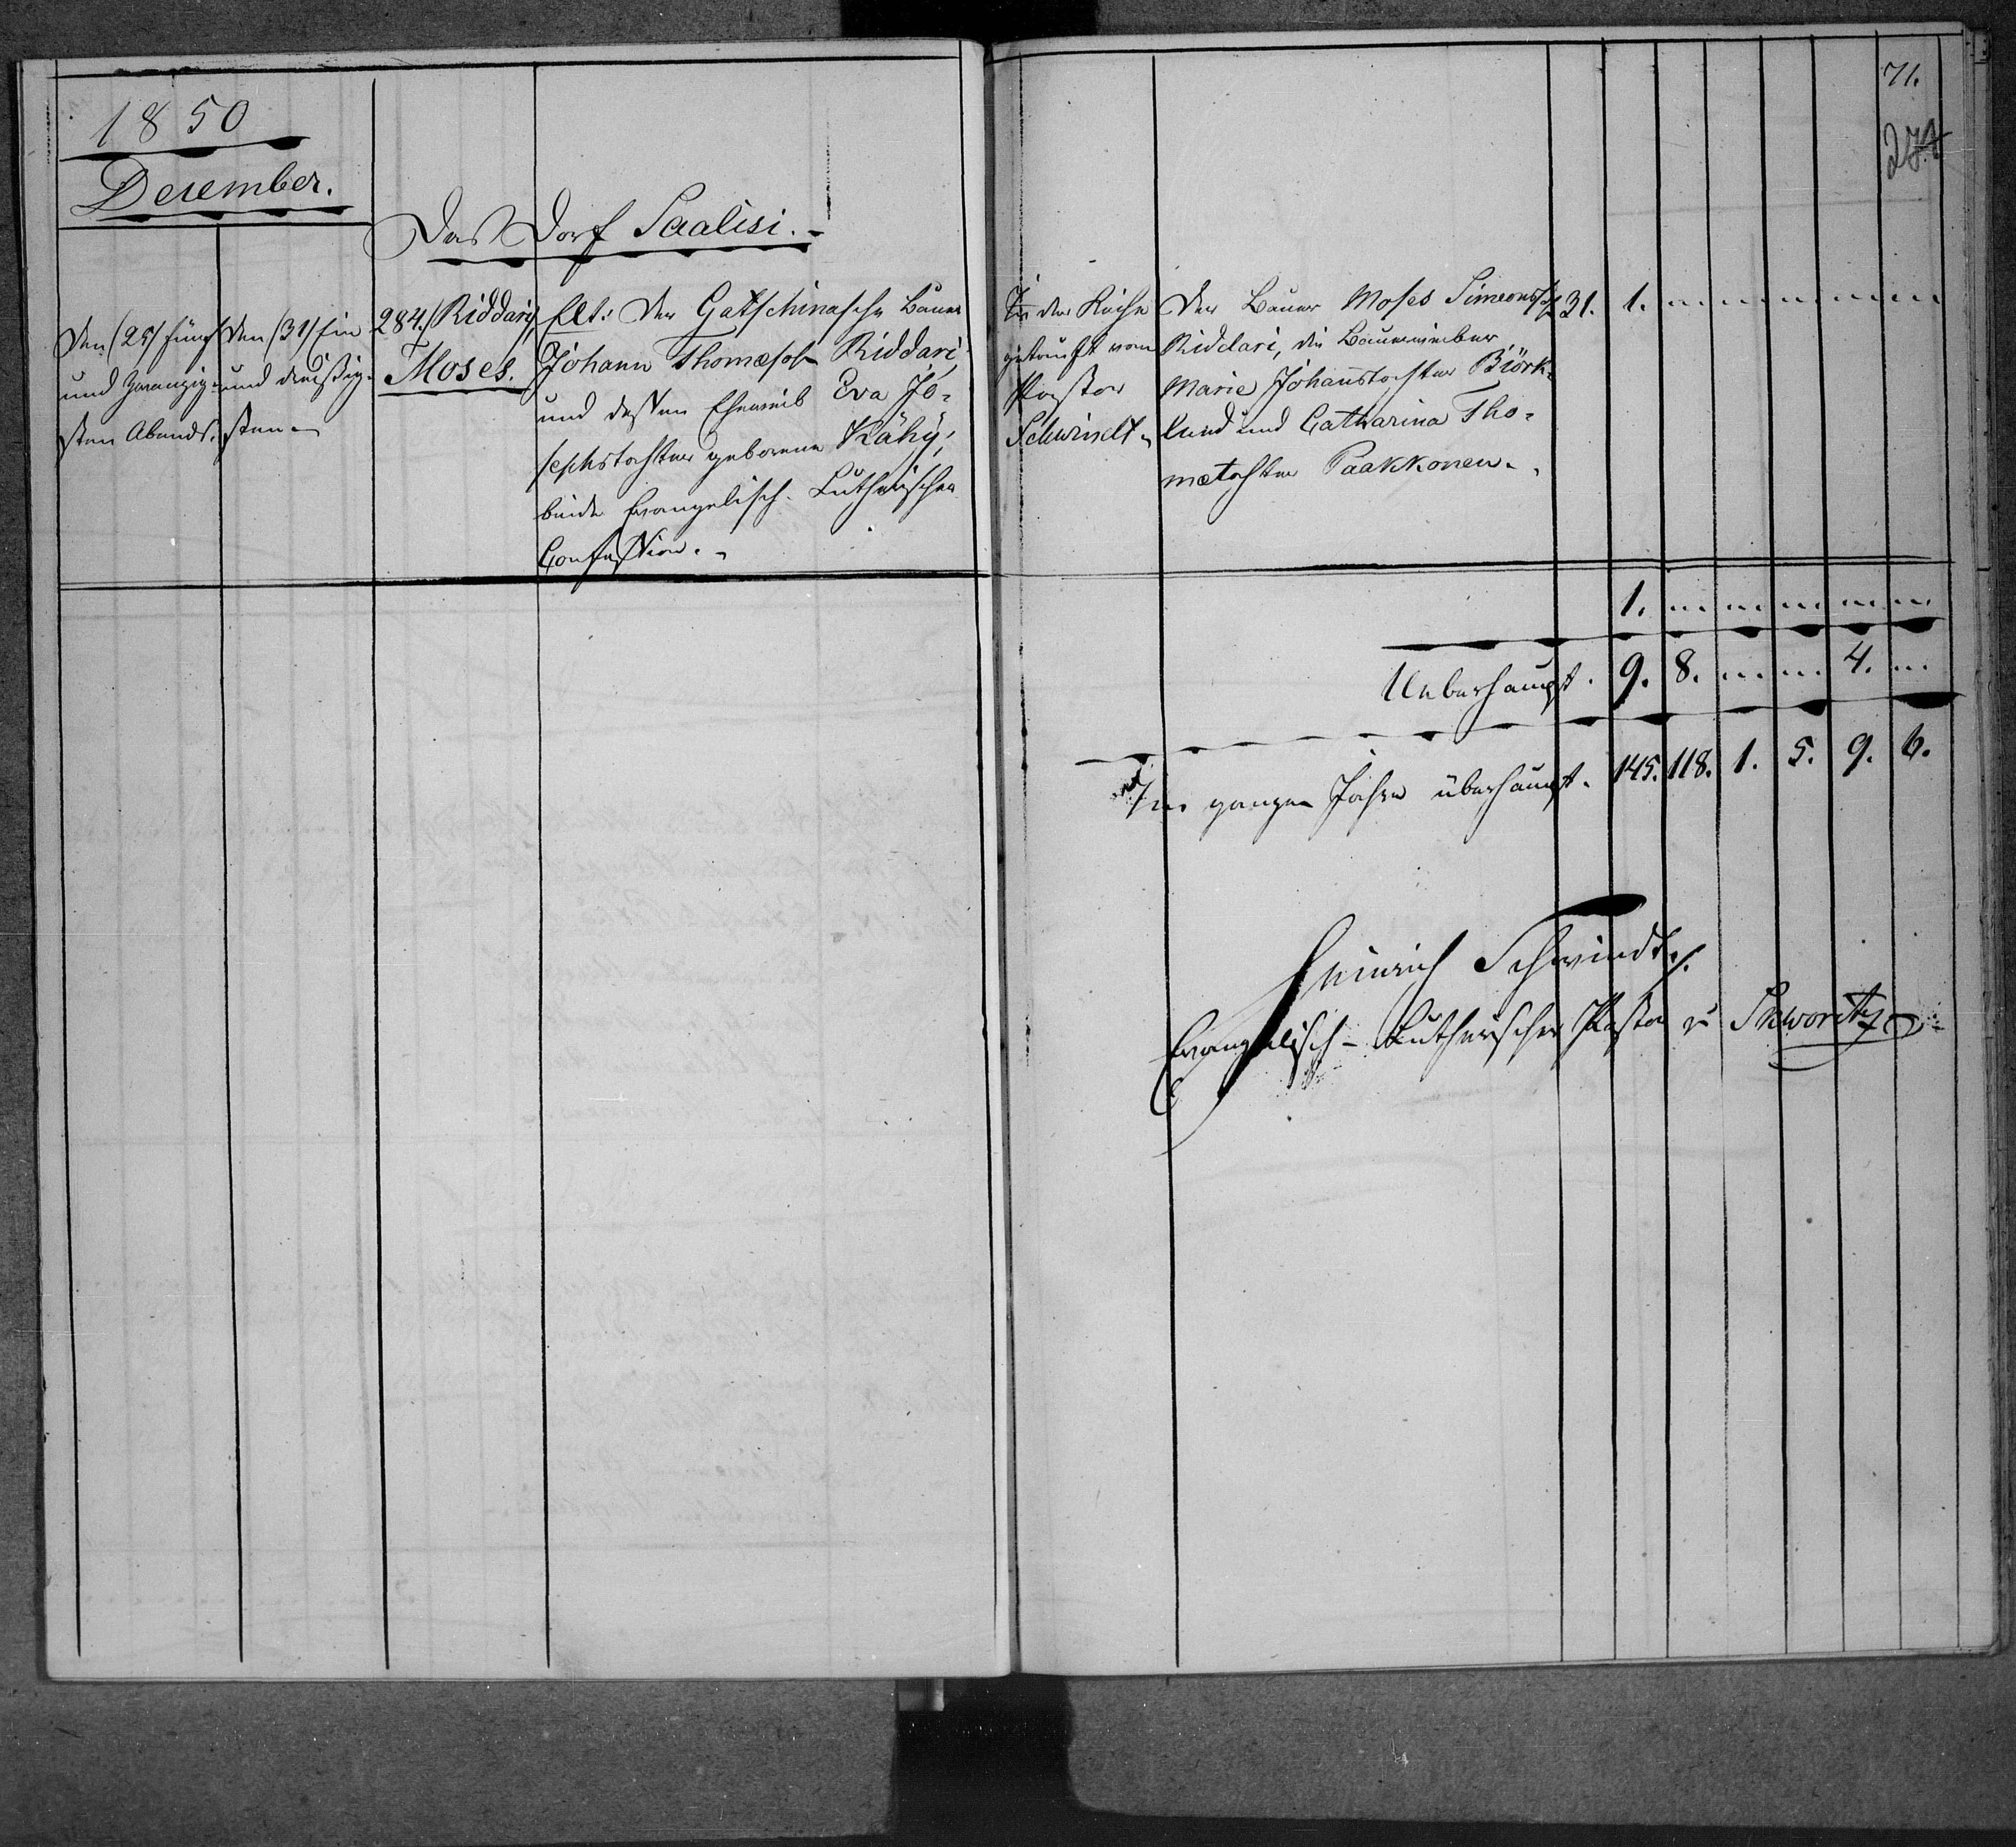 1850
December.
Das Dorf Saalisi.
Den (25) fünf
und zwanzig-
sten Abends.
den (31) ein
und dreißig-
sten
284. Riddari,
Moses.
Elt: Der Gatschinasche Bauer
Johann Thomæsohn Riddari,
und dessen Eheweib Eva Jo-
sephstochter geborene Kähÿ,
beide Evangelisch-Lutherischer
Confession.
71.
274
In der Kirche
getauft vom
Pastor
Schwindt
Der Bauer Moses Simeonss.
Riddari, die Bauerweiber
Marie Johannstochter Biörk-
lund und Catharina Tho-
mætochter Paakkonen.
131. 1.
1.
Ueberhaupt. 9. 8. 4.
Im ganzen Jahre überhaupt. 145. 118. 1. 5. 9. 6.
Heinrich Schwindt.
Evangelisch-Lutherischer Pastor zu Skworitz